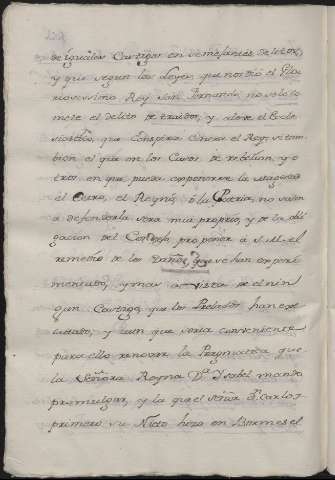 de iguales Castigos en semejantes delitos,
y que segun las Leyes, que nos dio el Glo
rioso Rey San Fernando, no solo co
mete el delito de traidor, y aleve el Ecle
siastico, que Conspira Contra el Rey, si tam
bien el que en los Casos de rebelion, y o
tros en que pueda exponerse la Magestad
el Ouro, el Reyno, ó la Patria, no salen
a defenderla sera mui propio, y de la obli
gacion del Consejo proponer a S. M. el
remedio de los Daños, que se han experi
mentado, y mas a vista de el nin
gun Castigo, que los Prelados han exe
cutado; y aun que seria conveniente
para ello renovar la Pragmatica que
la Señora Reyna D.ª Ysabel mando
promulgar, y la que el señor D. Carlos
primero su Nieto hizo en Bormes el